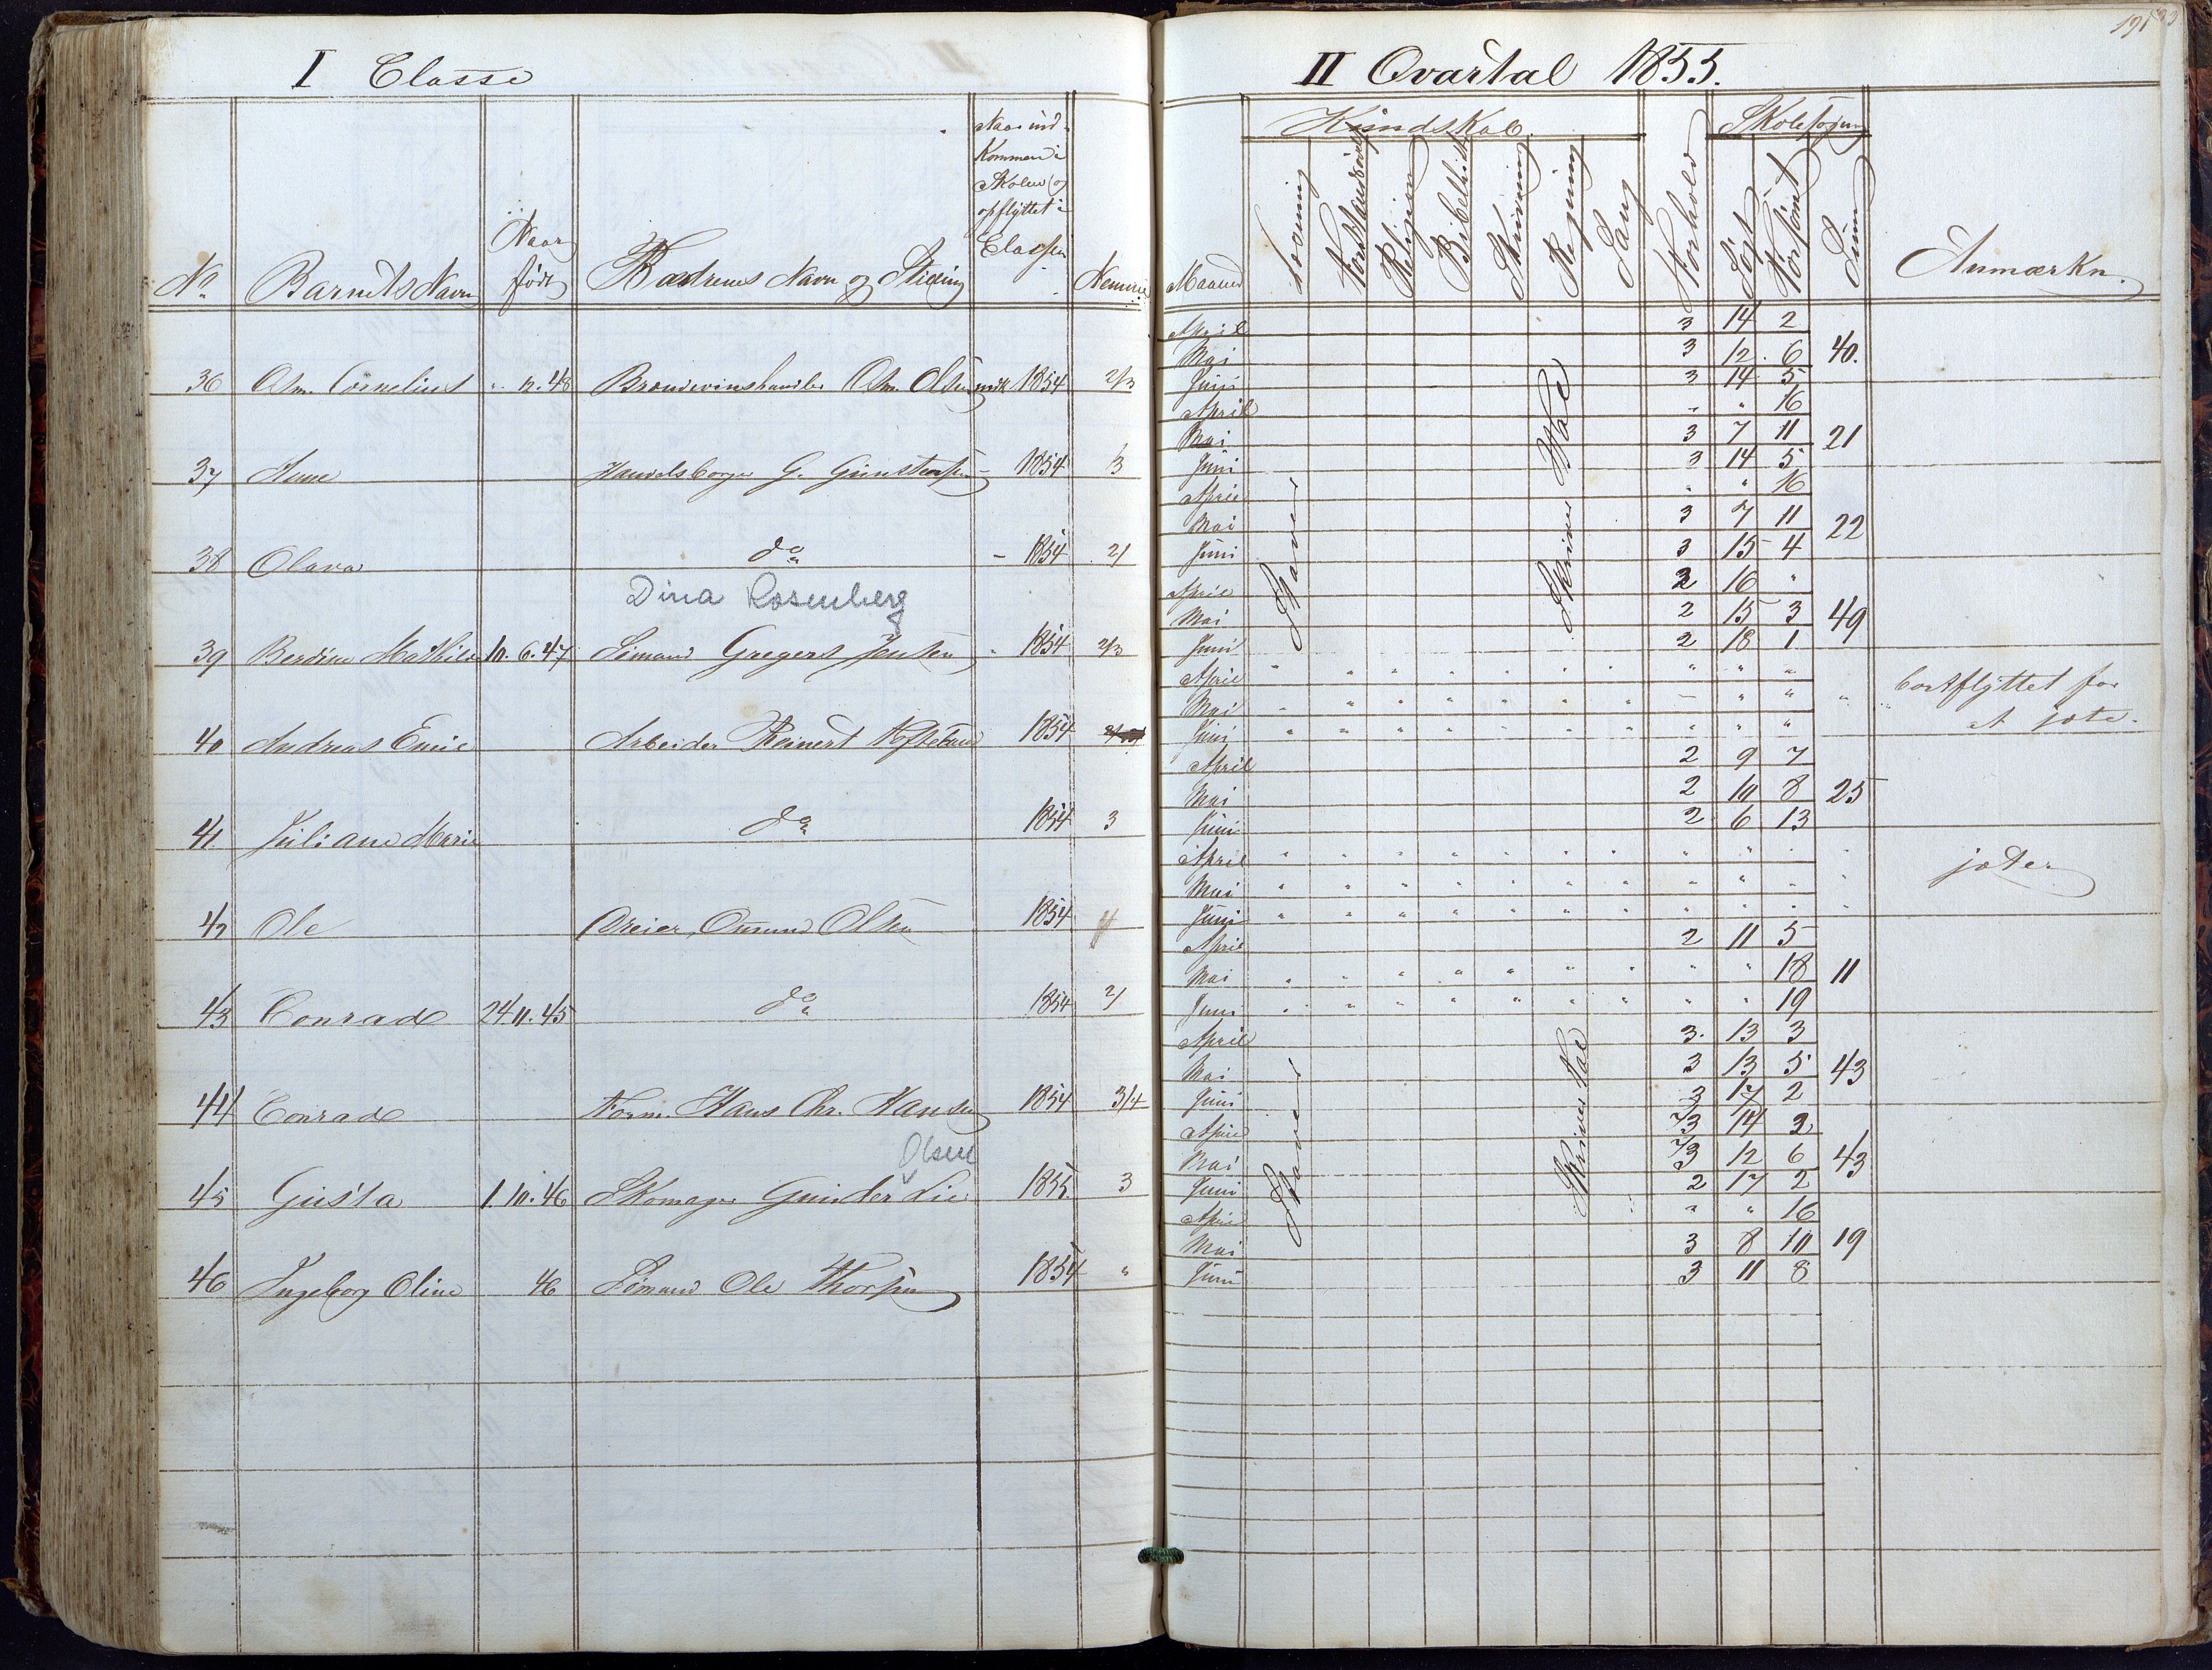 I Classe
II Qvartal 1855.
191
No
Barnets Navn
Naar født
Fædrenes Navn og Stilling
Naar ind-
kommen i
Skolen og
opflyttet i
Classen
Nemme
Maaned
Kundskab.
Læsning
Forstandsøvelse
Religion
Bibelhist
Skrivning
Regning
Sang
Forhold
Skolesøgning
Søgt
Forsømt
Sum
Anmærkn.
36 Asm. Cornelius 12. 48 Brændevinshandler Asm. Olsen 1854 2/3
April 3 14 2
Mai 3 12 6 40.
Juni 3 14 5
37 Anne Handelsborger G. 1854 3
April " " 16
Mai 3 7 11 21
Juni 3 14 5
38 Olava do - 1854 2/
April " " 16
Mai 3 7 11 22
Juni 3 15 4
Dina Rosenberg
39 Berdine Mathilde 10. 6. 47 Sømand Gregers Jensen " 1854 2/3
April 2 16 "
Mai 2 15 3 49
Juni 2 18 1
Staver
Skriver Tal
40 Andreas Emil Arbeider Reinert 1854
April " " " " " " " "
Mai " " " " " " " " "
Juni " " " " " " " "
bortflyttet for
at jæte.
41 Juliane Marie do 1854 3
April 2 9 7
Mai 2 10 8 25
Juni 2 6 13
42 Ole Dreier Omund Olsen 1854
April " " " " " " " "
Mai " " " " " " " "
Juni " " " " " " " "
jæter
43 Conrad 24 11. 45 do 1854 2/
April 2 11 5
Mai " " " " " " " " " 18 11
Juni " " " " " " " " " 19
44 Conrad Form. Hans Chr. Hansen 1854 3/4
April 3. 13 3
Mai 3 13 5 43
Juni 3 17 2
Olsen
45 Gusta 1. 10. 46 Skomager Gunder Lie 1855 3
April 2/3 14 2
Mai 2/3 12 6 43
Juni 2 17 2
Staver
Skriver Tal
46 Ingeborg Oline 46 Sømand Ole Thorsen 1854 "
April " " 16
Mai 3 8 10 19
Juni 3 11 8